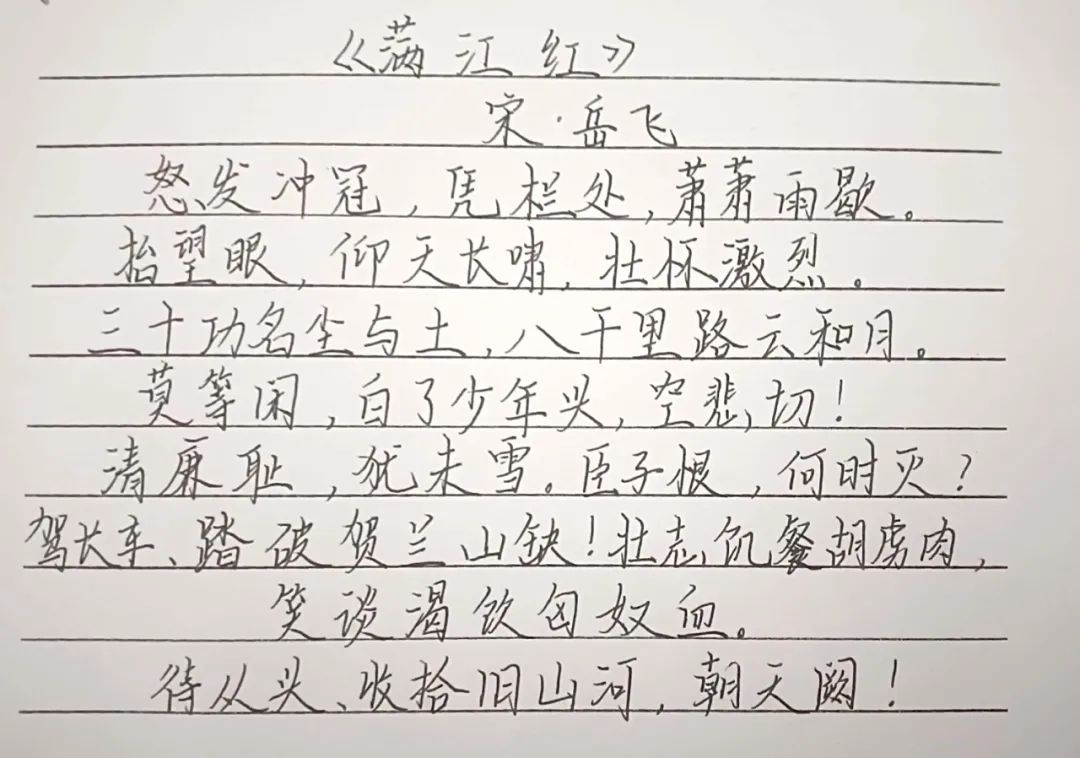 《满江红》
宋·岳飞
怒发冲冠,凭栏处,萧萧雨歇。
抬望眼,仰天长啸,壮怀激烈。
三十功名尘与土,八千里路云和月。
莫等闲,白了少年头,空悲切!
清廉耻,犹未雪。臣子恨,何时灭?
驾长车、踏破贺兰山缺!壮志饥餐胡虏肉,
笑谈渴饮匈奴血。
待从头、收拾旧山河,朝天阙!